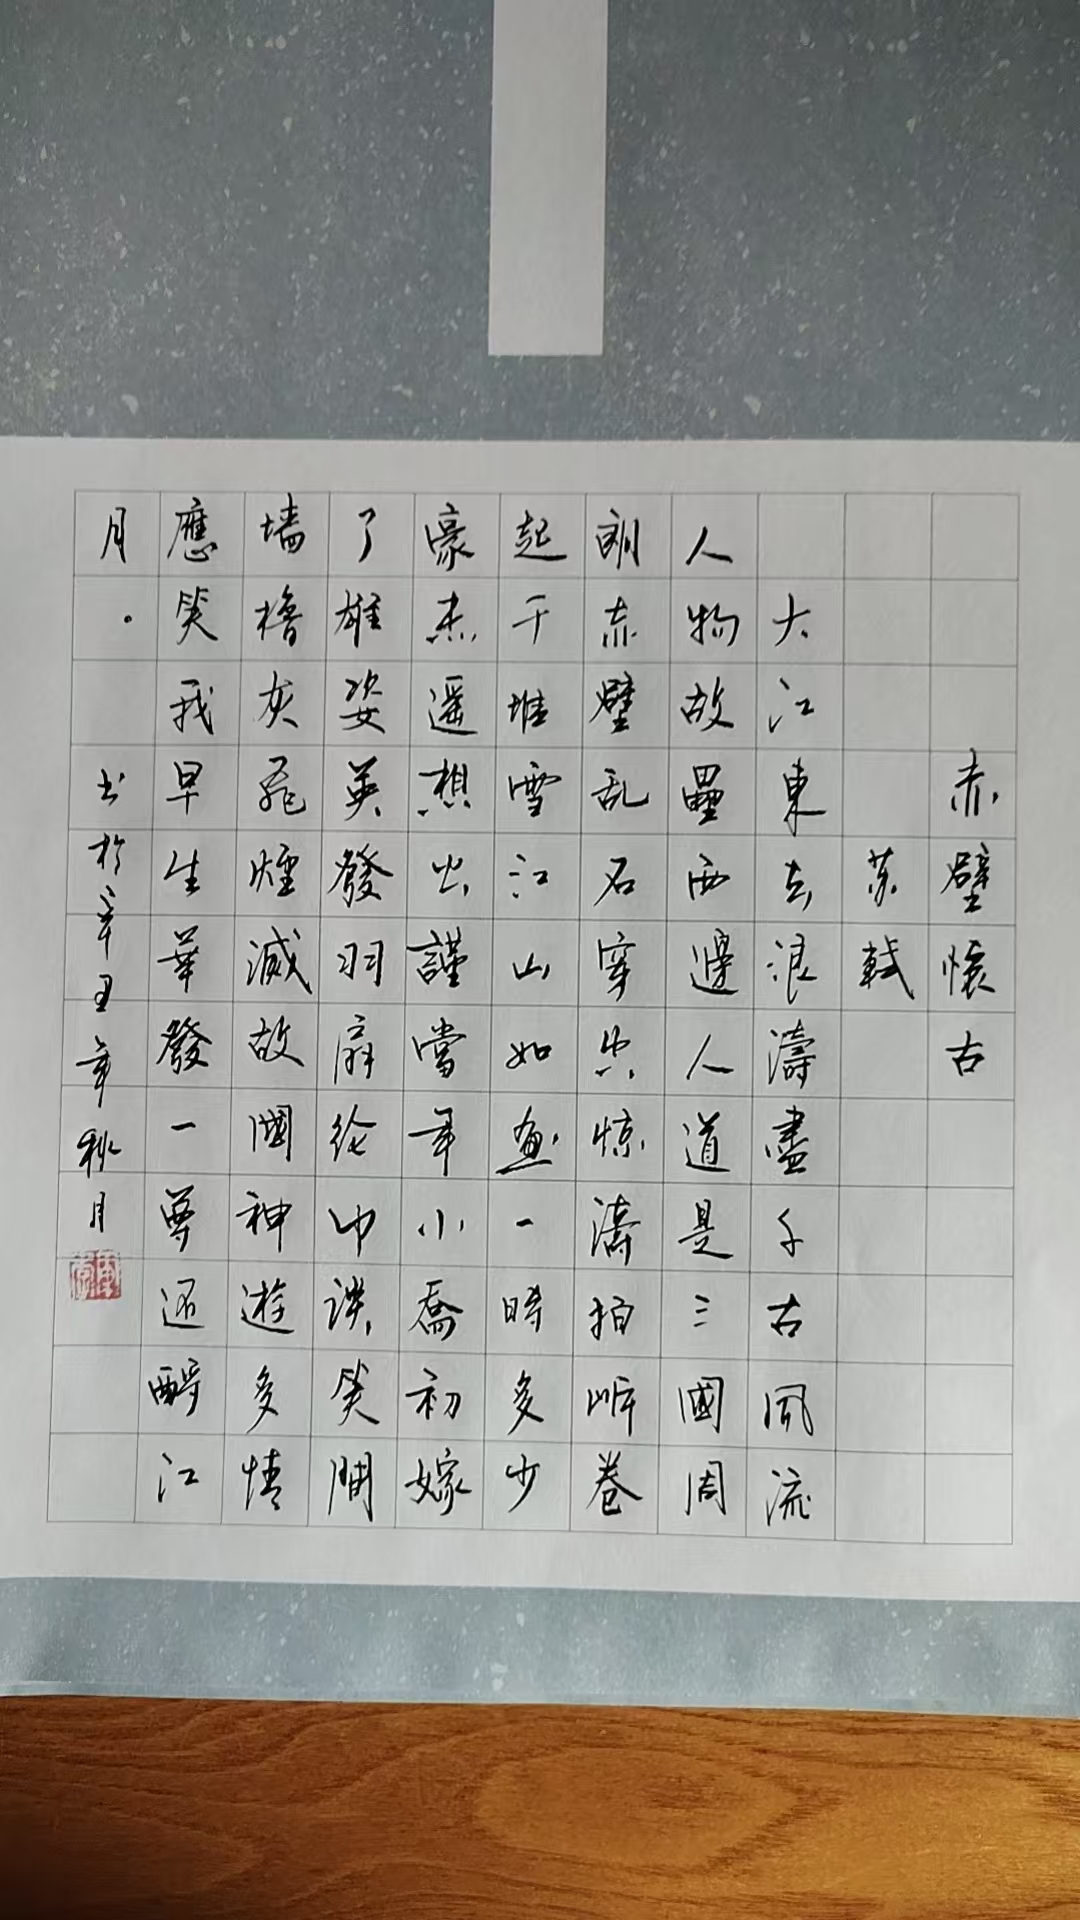 赤壁懷古
蘇軾
大江東去浪濤盡千古風流
人物故壘西邊人道是三國周
郎赤壁乱石穿空惊濤拍岸卷
起千堆雪江山如画一時多少
豪杰遥想公謹當年小喬初嫁
了雄姿英發羽扇纶巾談笑間
墙櫓灰飛煙滅故國神遊多情
應笑我早生華發一尊还酹江
月。
书於辛丑年秋月